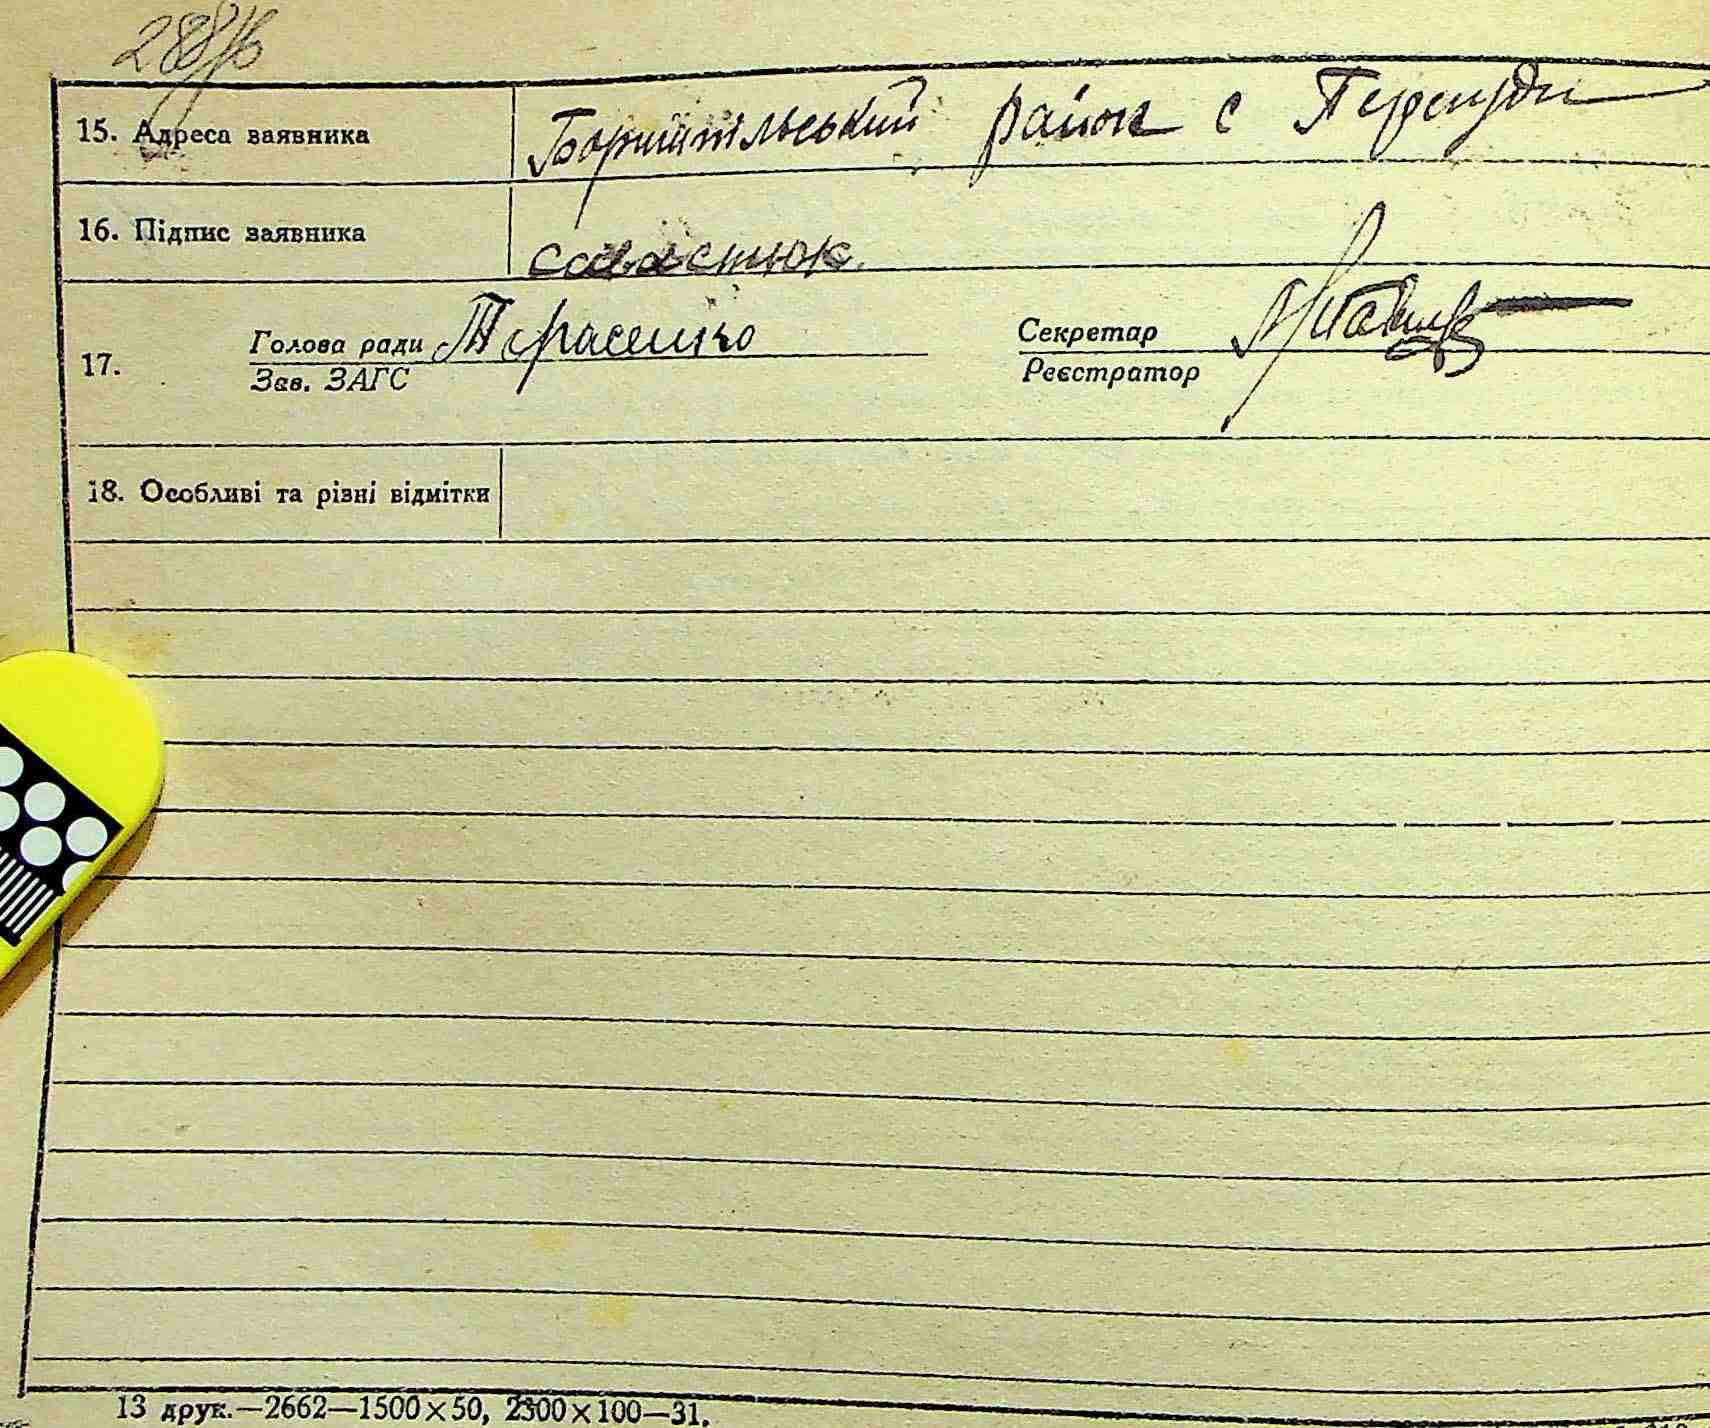 288
15. Адреса заявника Бориспільський район с
16. Підпис заявника Савастюк
Голова ради Тарасенко Секретар
17.
Зав. ЗАГС Реєстратор
18. Особливі та різні відмітки
13 друк.—2662—1500×50, 2300×100—31.